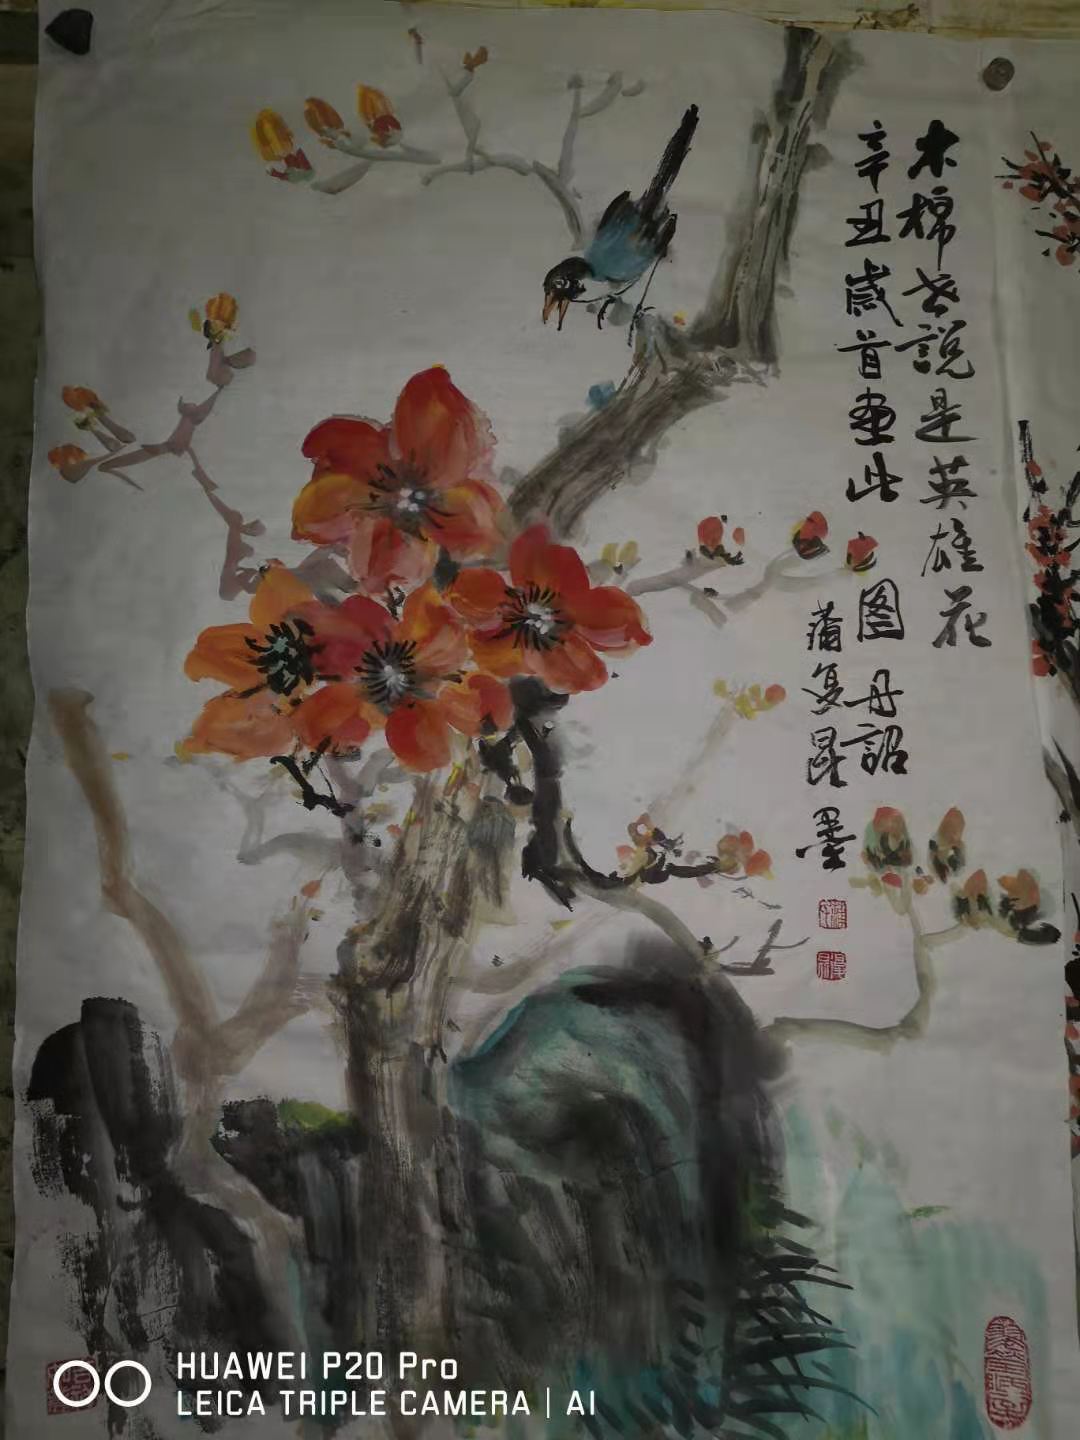 木棉說是英雄花
辛丑歲首畫此图丹詔
蒲复昆墨
HUAWEI P20 Pro
LEICA TRIPLE CAMERA | AI